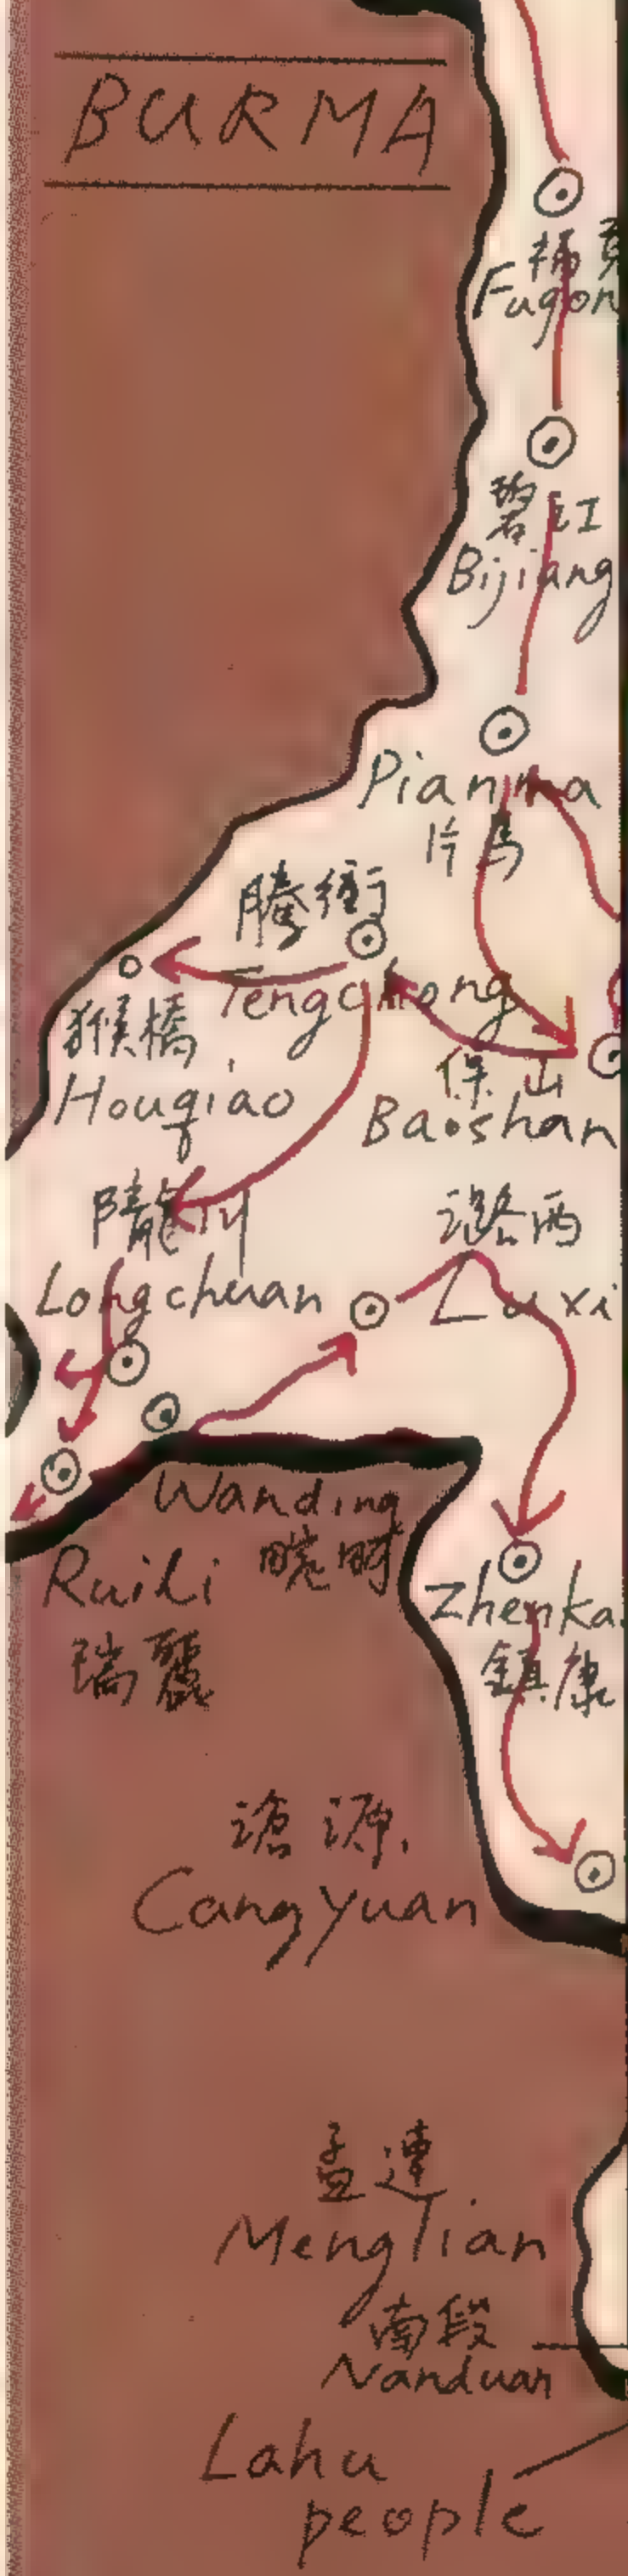 BURMA
福
Fugon
碧江
Bijiang
Pianma
片馬
騰衝
Tengchong
猴橋
Houqiao
保山
Baoshan
隴川
Longchuan
潞西
Luxi
Wanding
畹町
Ruili
瑞麗
Zhenka
鎮康
滄源
Cangyuan
孟連
Menglian
南段
Nanduan
Lahu
people